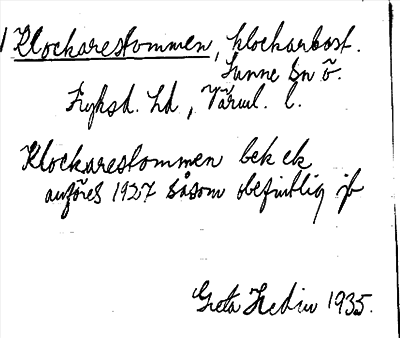 Klockarestommen, klockarbost.
Sunne sn ö.
Fryksd. hd, Värml. l.
Klockarestommen bek ek
anföres 1927 såsom obefintlig jb
Greta Hedin 1935.